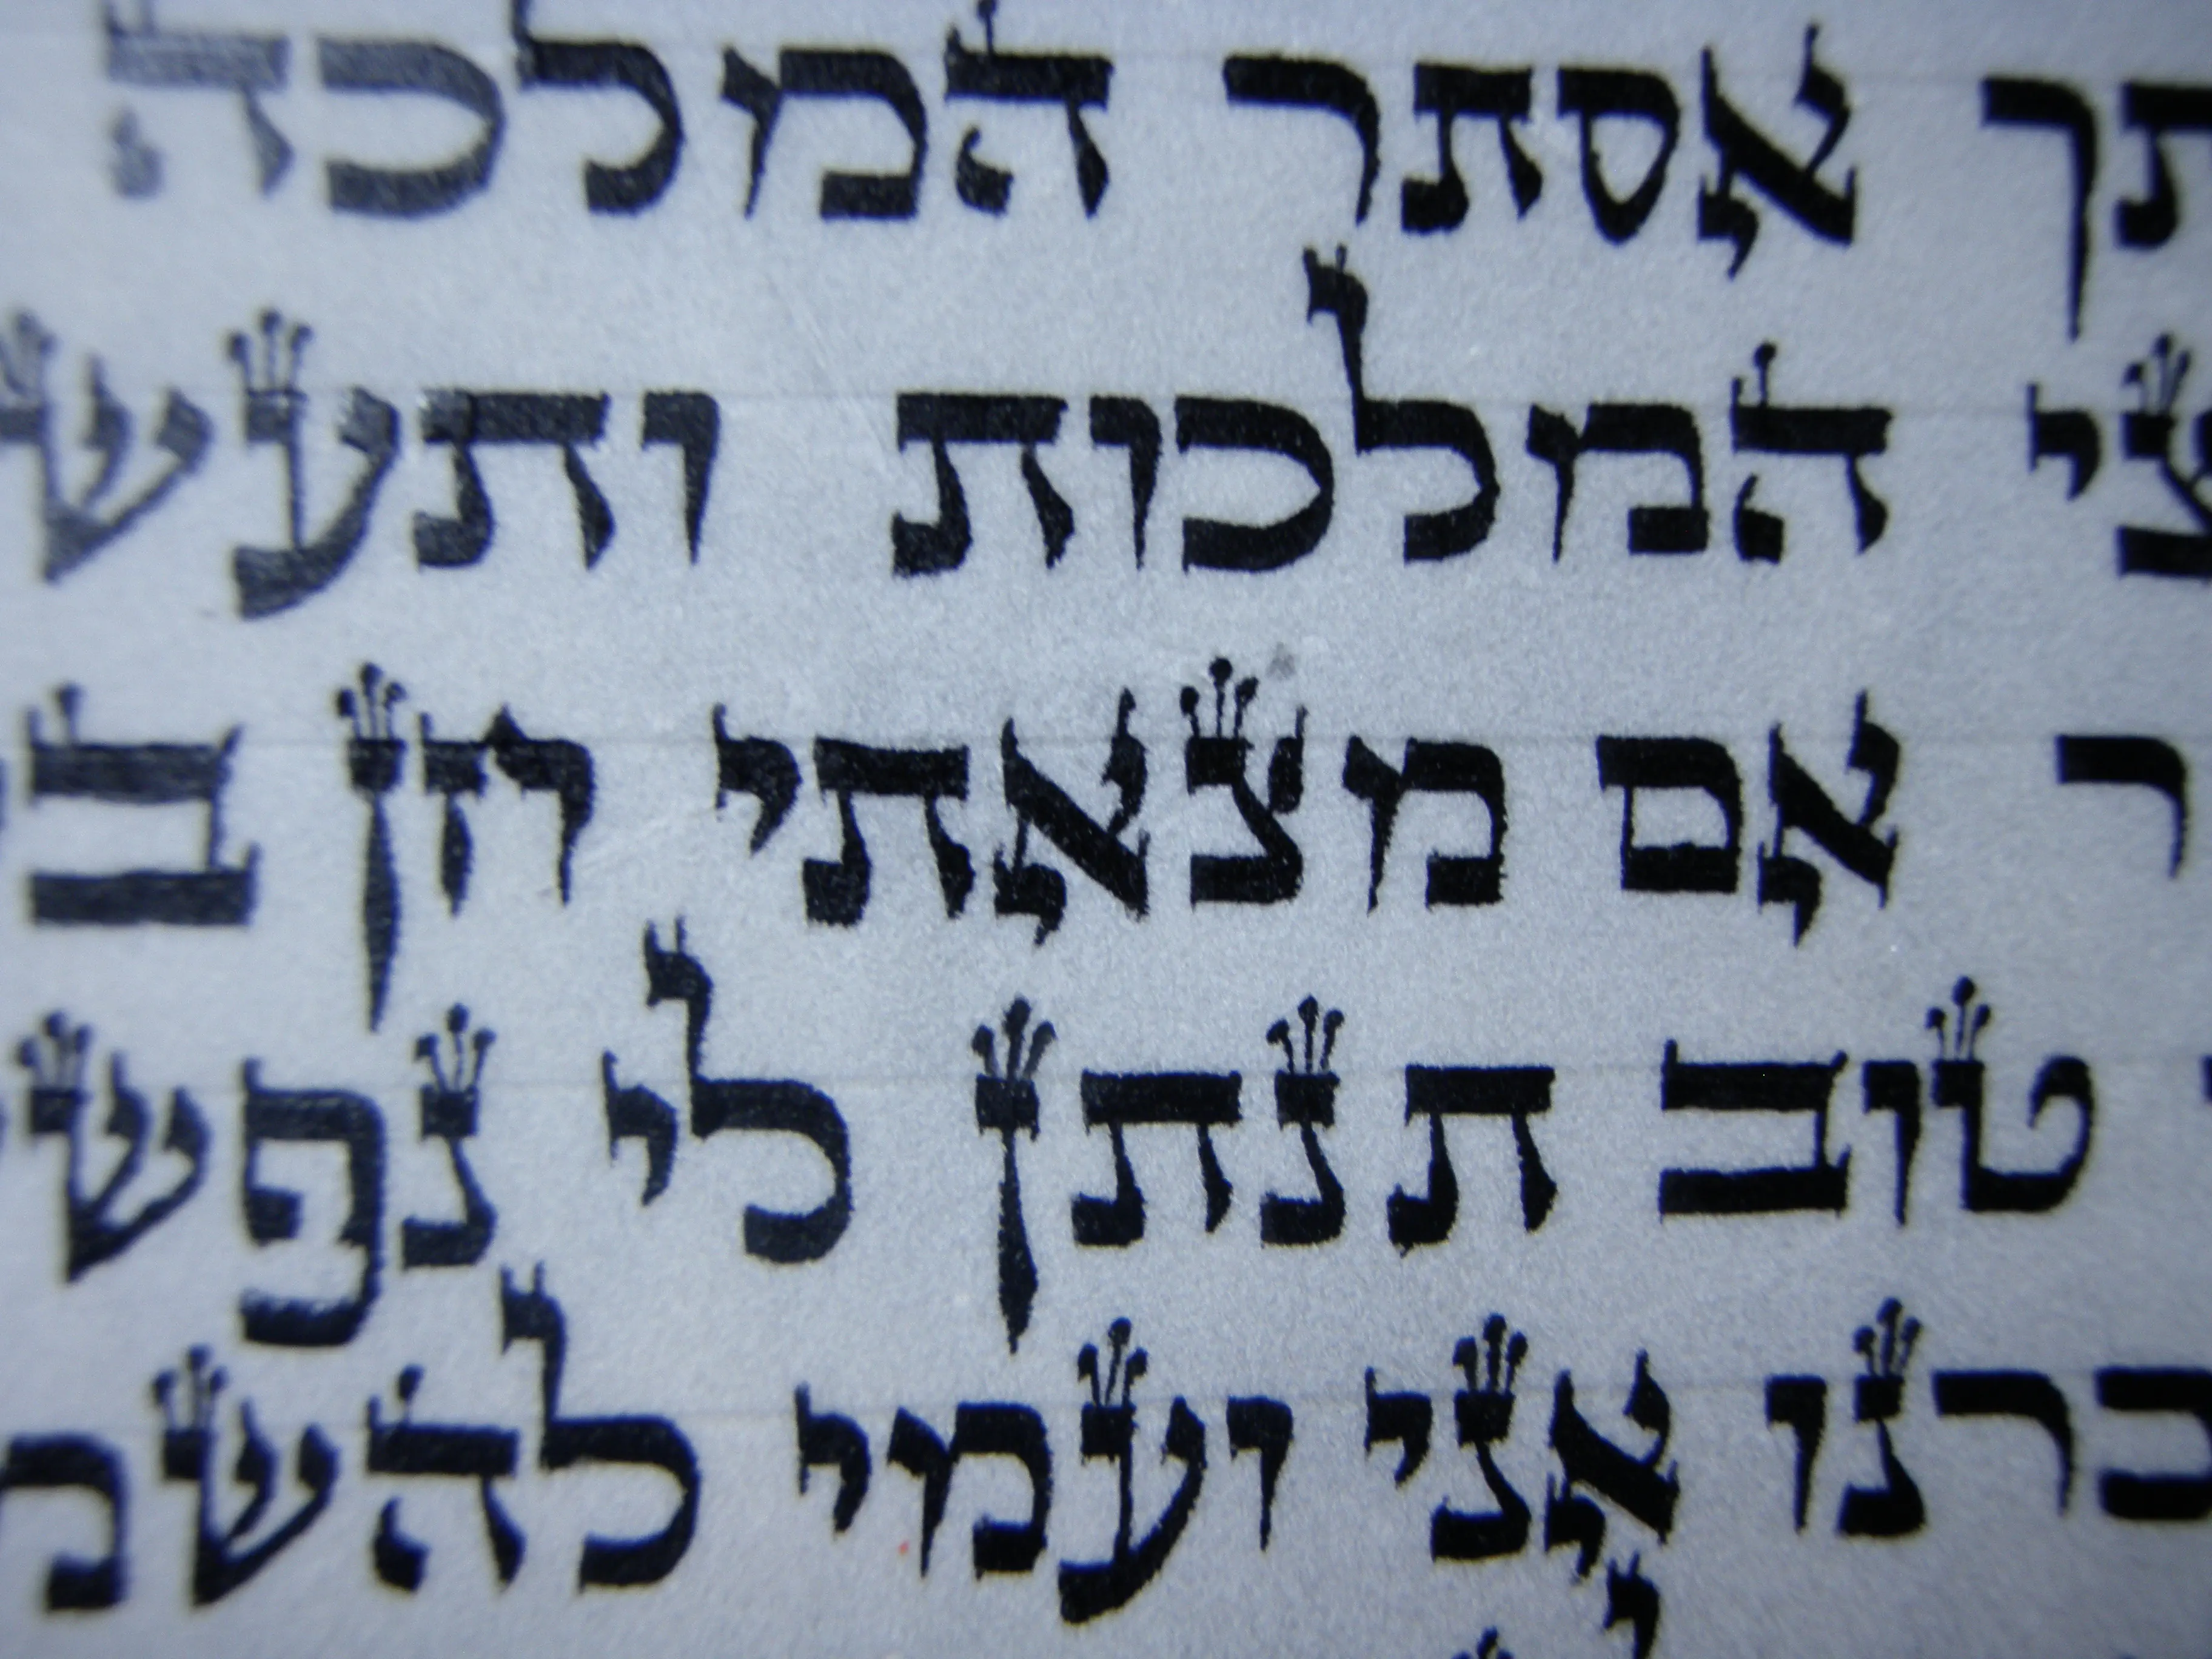 תך אסתר המלכה
צי המלכות ותעש
ר אם מצאתי חן ב
טוב תנתן לי נפש
כרנו אני ועמי להשמ